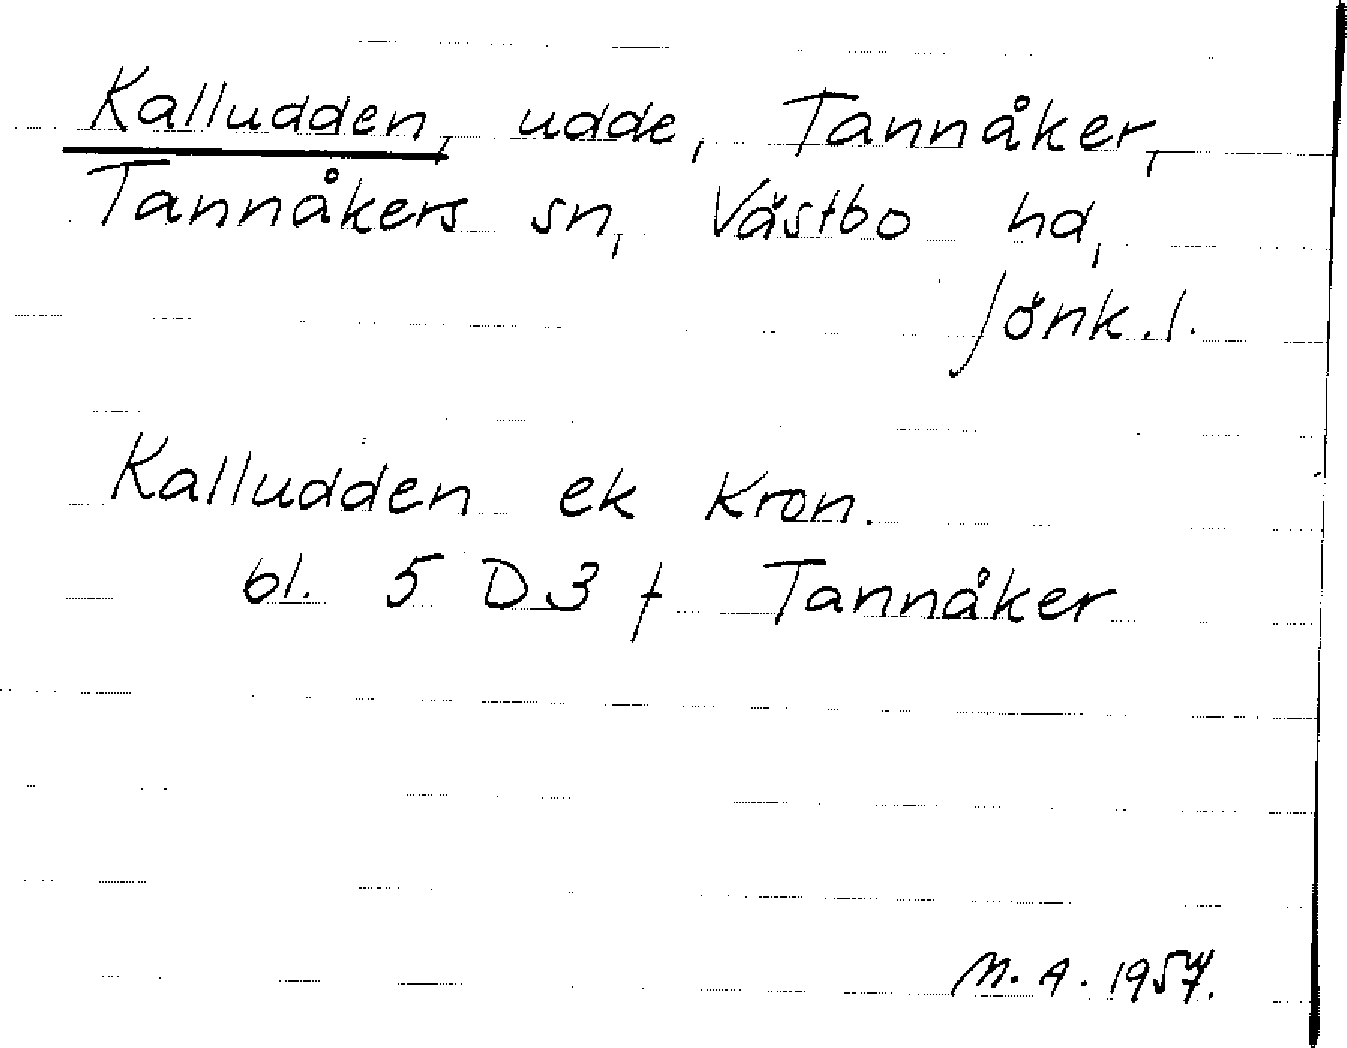 Kalludden, udde, Tannåker,
Tannåkers sn, Västbo hd,
Jönk.l.
Kalludden ek Kron.
bl. 5 D 3 f Tannåker
M.A. 1957.